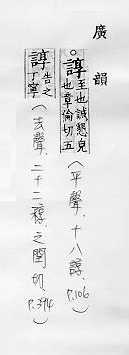 廣韻
○諄至也誠懇皃也章倫切五(平聲、十八諄、P.106)
諄告之丁寧(去聲、二十二稕、之閏切、P.394)